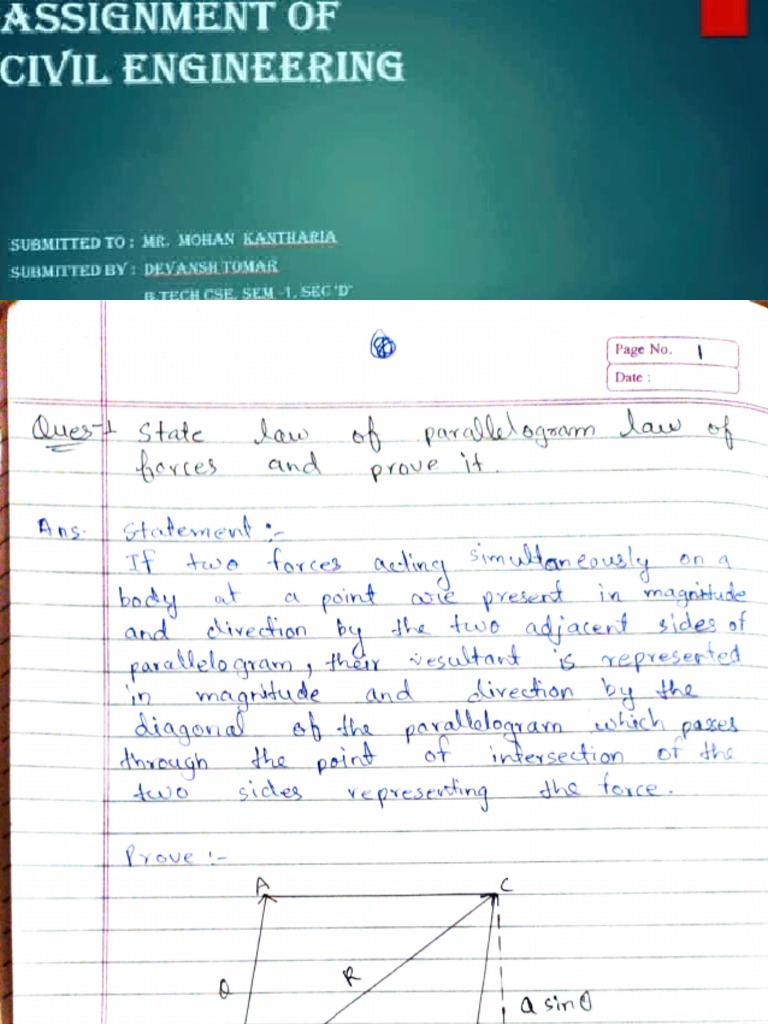 ASSIGNMENT OF
CIVIL ENGINEERING
SUBMITTED TO : MR. MOHAN KANTHARIA
SUBMITTED BY : DEVANSH TOMAR
B.TECH CSE, SEM -1, SEC 'D'
Page No. 1
Date :
Ques-1 State law of parallelogram law of
forces and prove it.
Ans. Statement :-
If two forces acting simultaneously on a
body at a point are present in magnitude
and direction by the two adjacent sides of
parallelogram, their resultant is represented
in magnitude and direction by the
diagonal of the parallelogram which passes
through the point of intersection of the
two sides representing the force.
Prove :-
A C
Q R
Q sin θ